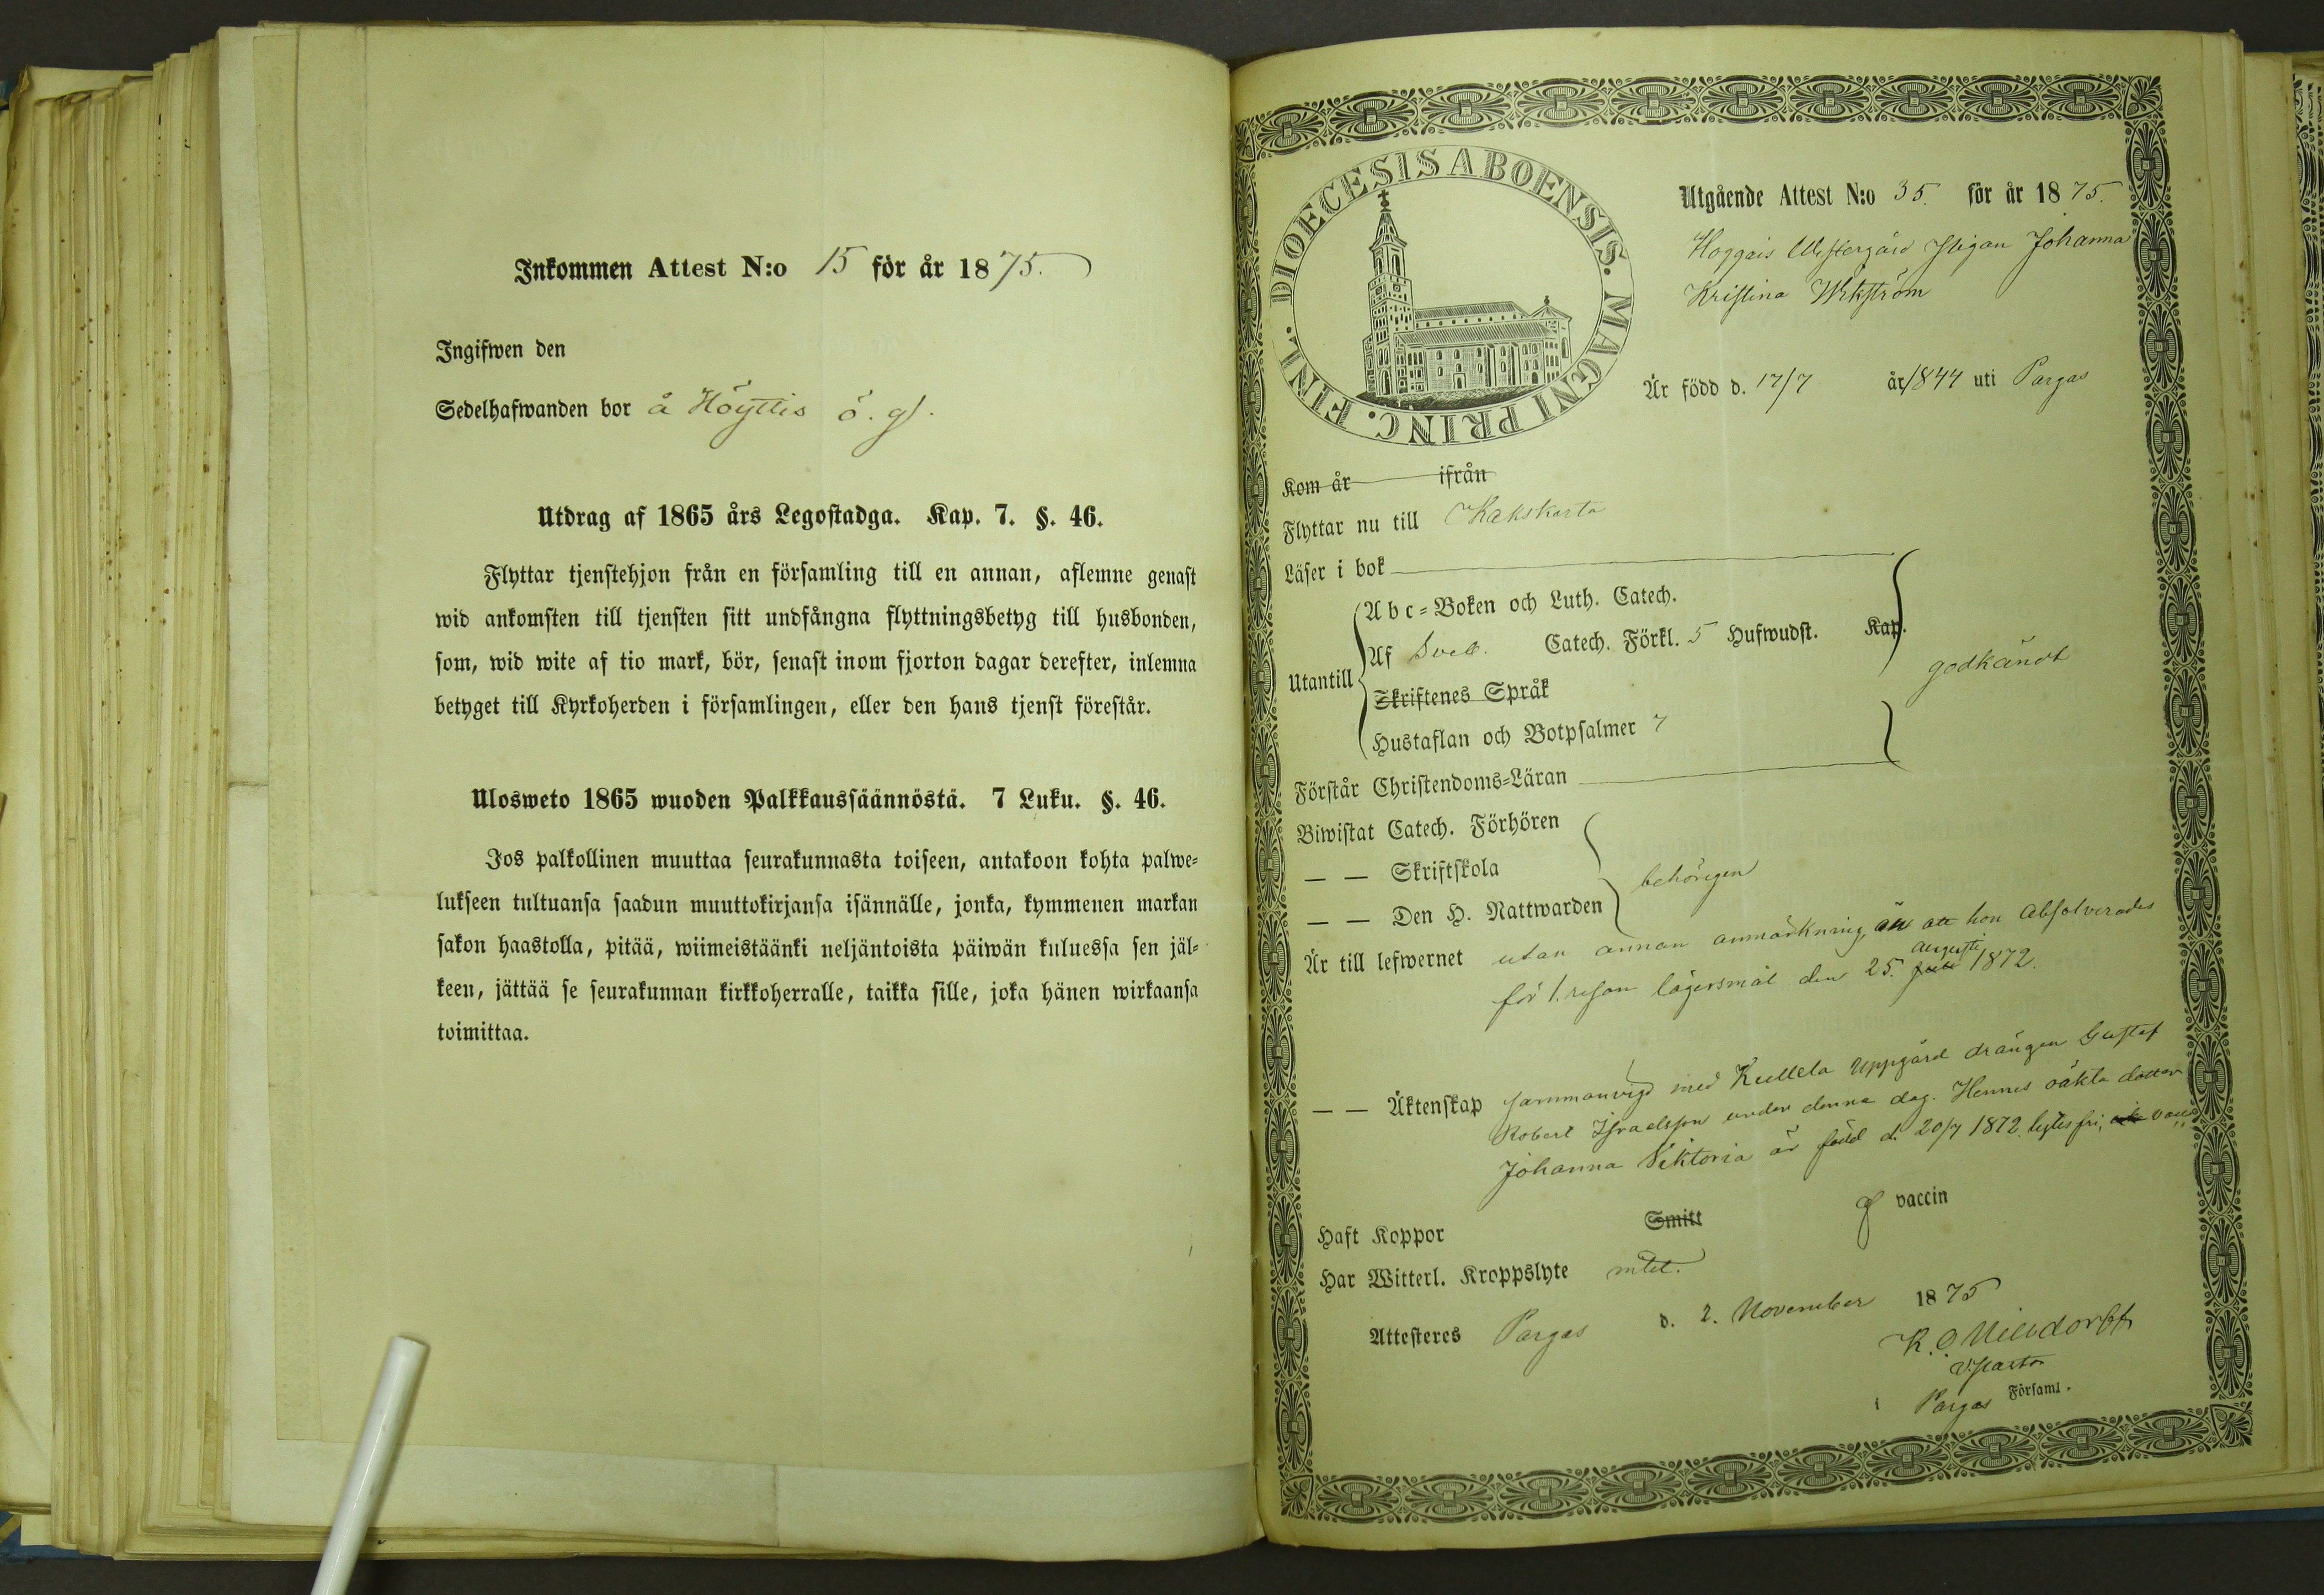 Inkommen Attest N:o 15 för år 1875.
Ingifwen den
Sedelhafwanden bor å Höyttis ö. g.
Utdrag af 1865 års Legostadga. Kap. 7. §. 46.
Flyttar tjenstehjon från en församling till en annan, aflemne genast
wid ankomsten till tjensten sitt undfångna flyttningsbetyg till husbonden,
som, wid wite af tio mark, bör, senast inom fjorton dagar derefter, inlemna
betyget till Kyrkoherden i församlingen, eller den hans tjenst förestår.
Ulosweto 1865 wuoden Palkkaussäännöstä. 7 Luku. §. 46.
Jos palkollinen muuttaa seurakunnasta toiseen, antakoon kohta palwe-
lukseen tultuansa saadun muuttokirjansa isännälle, jonka, kymmenen markan
sakon haastolla, pitää, wiimeistäänki neljäntoista päiwän kuluessa sen jäl-
keen, jättää se seurakunnan kirkkoherralle, taikka sille, joka hänen wirkaansa
toimittaa.
DIOECESIS ABOENSIS. MAGNI PRINC. FINL.
Utgående Attest N:o 35. för år 1875.
Hoggais Westergård Pigan Johanna
Kristina Wikström
Är född d. 17/7 år 1844 uti Pargas
Kom år ifrån
Flyttar nu till Kakskerta
Läser i bok
Utantill
Abc-Boken och Luth. Catech.
Af Sveb. Catech. Förkl. 5 Hufwudst. Kap.
Skriftenes Språk
Hustaflan och Botpsalmer 7
godkändt
Förstår Christendoms-Läran
Biwistat Catech. Förhören
— — Skriftskola
— — Den H. Nattwarden
behörigen
Är till lefwernet utan annan anmärkning, än att hon absolverades
för 1. resan lägersmål den 25. Augusti 1872.
— — Äktenskap sammanvigd med Kullela Uppgård drängen Gustaf
Robert Israelsson under denna dag. Hennes oäkta dotter
Johanna Viktoria är född d. 20/7 1872. lytesfri, vacc.
Haft Koppor Smitt vaccin
Har Witterl. Kroppslyte intet.
Attesteres Pargas d. 2. November 1875
V. Pastor
i Pargas Församl.